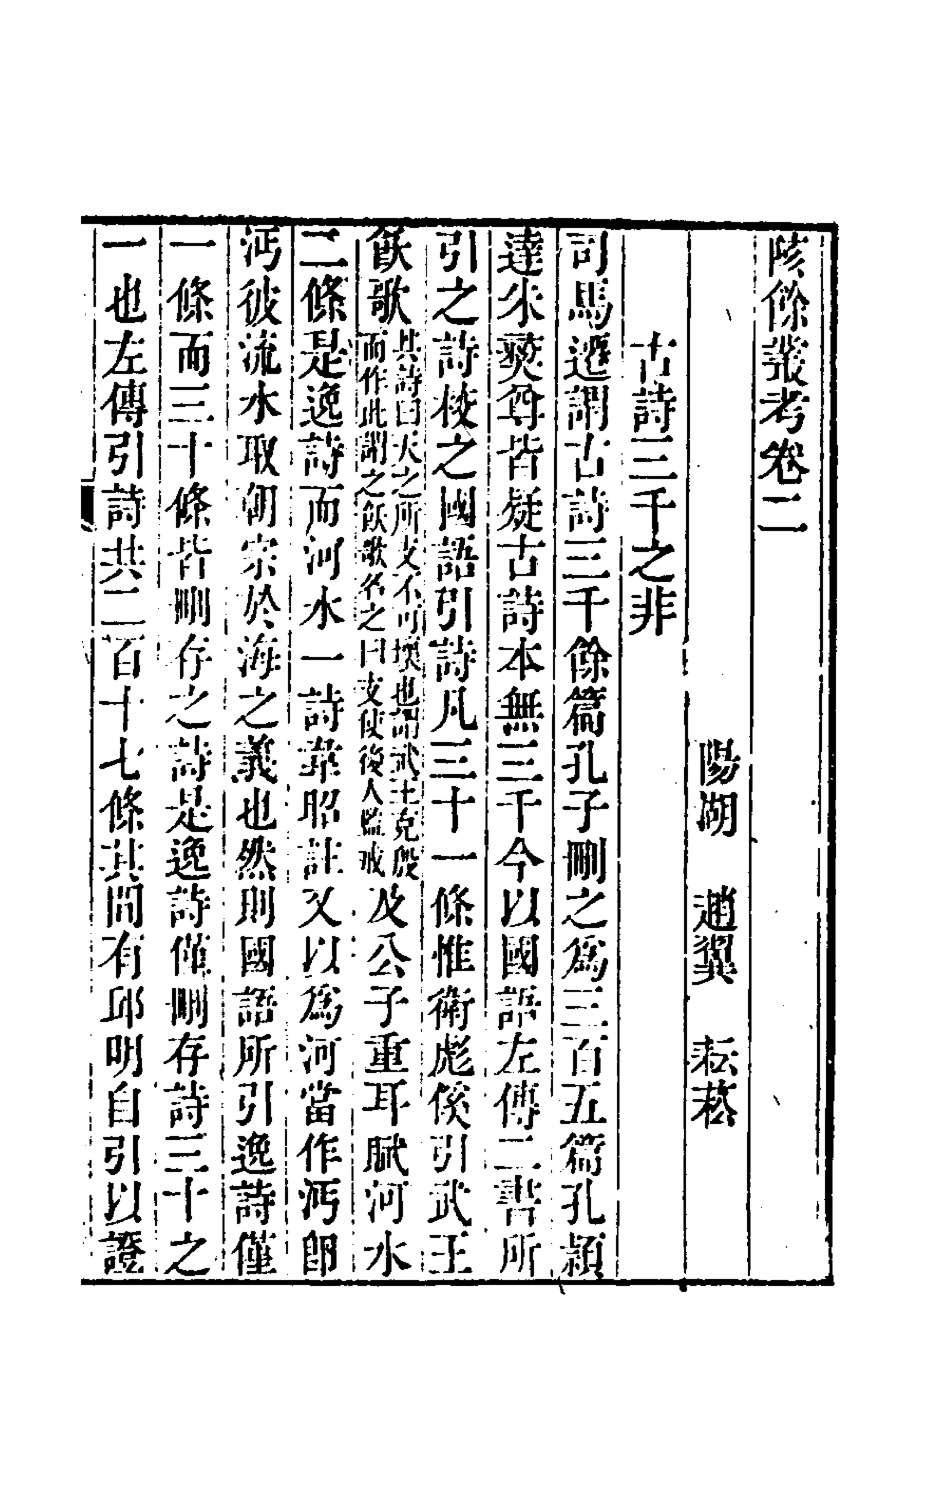 陔餘叢考卷二
陽湖 趙翼 耘菘
古詩三千之非
司馬遷謂古詩三千餘篇孔子刪之為三百五篇孔穎
達朱彝尊皆疑古詩本無三千今以國語左傳二書所
引之詩校之國語引詩凡三十一條惟衛彪傒引武王
飫歌其詩曰天之所支不可壞也謂武王克殷而作此謂之飫歌名之曰支使後人監戒及公子重耳賦河水
二條是逸詩而河水一詩韋昭註又以為河當作沔即
沔彼流水取朝宗於海之義也然則國語所引逸詩僅
一條而三十條皆刪存之詩是逸詩僅刪存詩三十之
一也左傳引詩共二百十七條其間有邱明自引以證